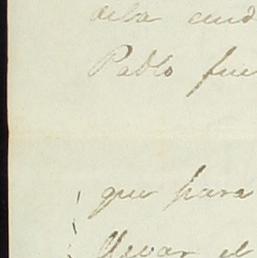 dela ciud
Pablo fue
que para
llevar el